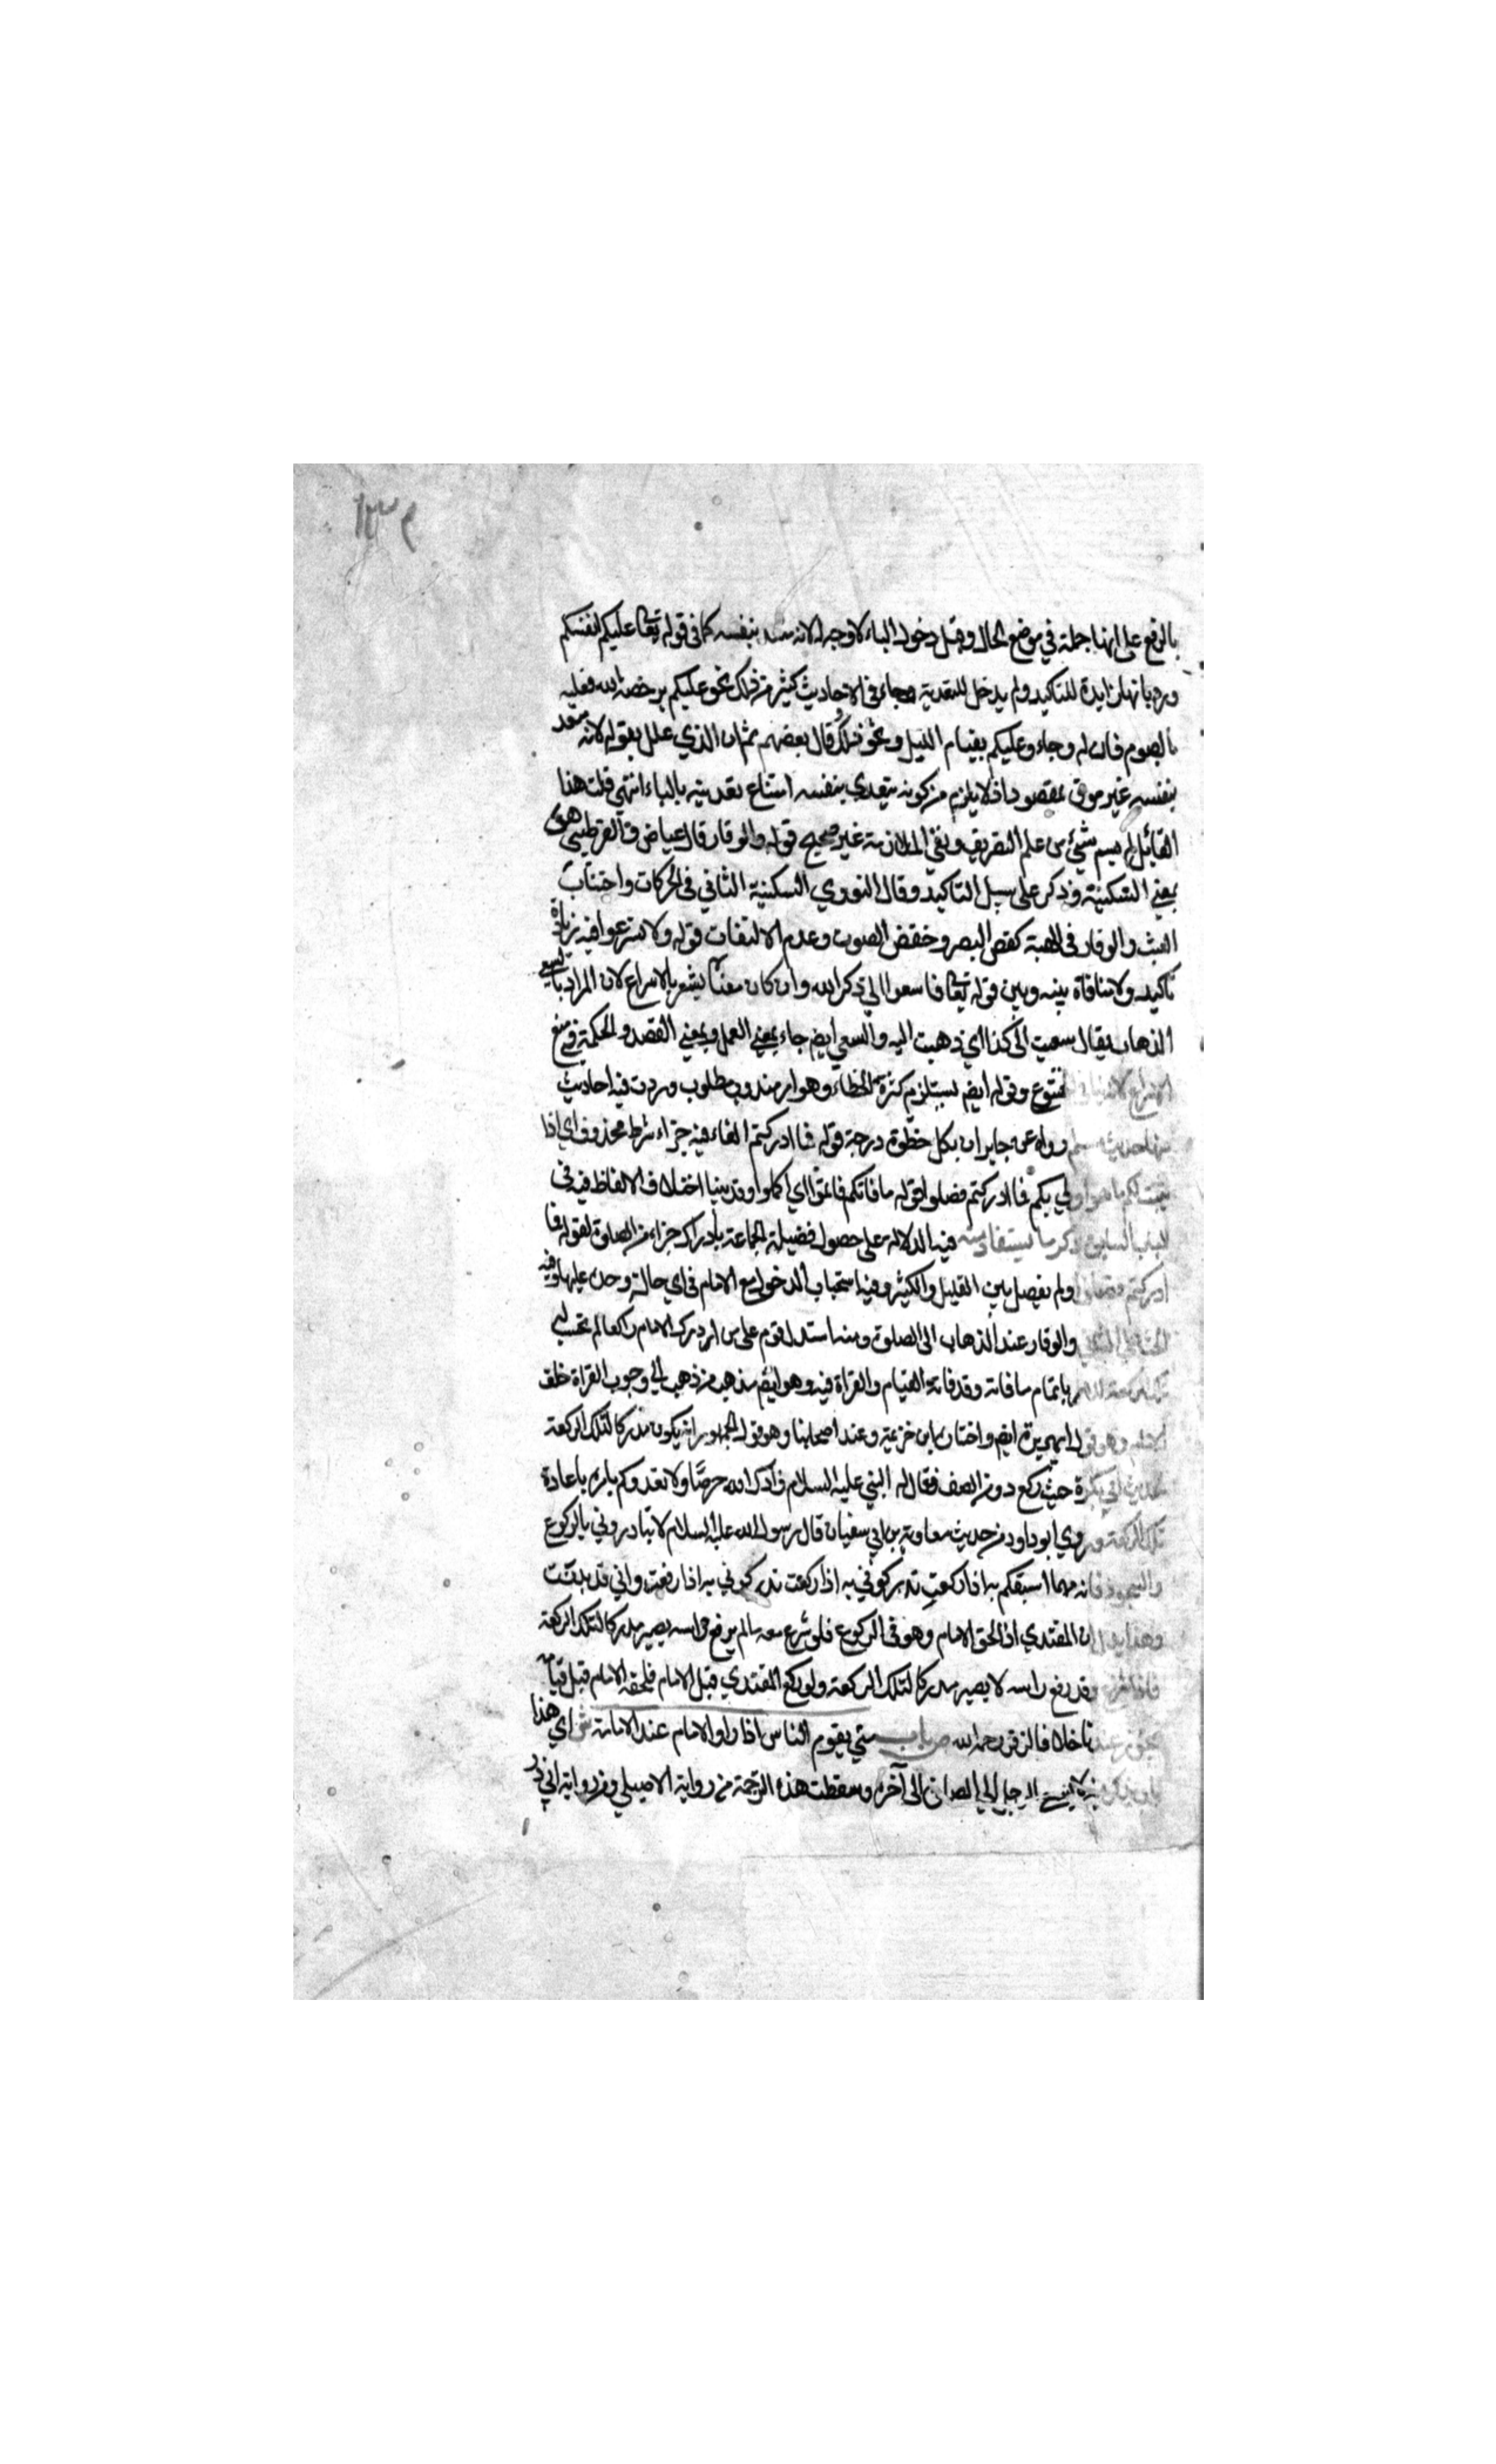 ١٣٢
بالرفع على انها جملة في موضع الحال وقيل دخول الباء لا وجه له لانه متعد بنفسه كما في قوله تعا عليكم انفسكم
ورد بانها زايدة للتاكيد ولم يدخل للتعدية وجاء في الاحاديث كثير من ذلك نحو عليكم برخصة الله فعليه
بالصوم فانه له وجاء وعليكم بقيام الليل ونحو ذلك وقال بعضهم ثم ان الذي علل بقوله لانه متعد
بنفسه غير موف بمقصوده اذ لا يلزم من كونه يتعدي بنفسه امتناع تعديته بالباء انتهي قلت هذا
القايل لم يشم شيئ من علم التصريف ونفي الملازمة غير صحيح قوله والوقار قال عياض والقرطبي هو
بمعني السكينة وذكر على سبيل التاكيد وقال النووي السكينة التاني في الحركات واجتناب
العبث والوقار في الهيئة كغض البصر وخفض الصوت وعدم الالتفات قوله ولا تسرعوا فيه زيادة
تاكيد ولا منافاة بينه وبين قوله تعا فاسعوا الي ذكر الله وان كان معناه يشعر بالاسراع لان المراد بالسعي
الذهاب يقال سعيت الى كذا اي ذهبت اليه والسعي ايضا جاء بمعني العمل وبمعني القصد والحكمة في منع
الاسراع لانه ينافي الخشوع وقوله ايضا يستلزم كثرة الخطاء وهو امر مندوب مطلوب وردت فيه احاديث
منها حديث مسلم رواه عن جابر ان بكل خطوة درجة قوله فما ادركتم الفاء فيه جزاء شرط محذوف اي اذا
ثبت لكم ما هو اولي بكم فما ادركتم فصلوا قوله ما فاتكم فاتموا اي اكملوا وقد بينا اختلاف الالفاظ فيه في
الباب السابق ذكر ما يستفاد منه فيه الدلالة على حصول فضيلة الجماعة بادراك جزاء من الصلوة لقوله فما
ادركتم فصلوا ولم يفصل بين القليل والكثير وفيه استحباب الدخول مع الامام في اي حالة وجده عليها وفيه
الحث على التاني والوقار عند الذهاب الى الصلوة ومنه استدل قوم على من ادرك الامام راكعا لم تحسب له
تلك الركعة للامر باتمام ما فاته وقد فاته القيام والقراة فيه وهو ايضا مذهب من ذهب الي وجوب القراة خلف
الامام وهو قول ابي هريرة ايضا واختاره ابن خزيمة وعند اصحابنا وهو قول الجمهور انه يكون مدركا لتلك الركعة
لحديث ابي بكرة حيث ركع دون الصف فقال له النبي عليه السلام زادك الله حرصا ولا تعد ولم يامره باعادة
تلك الركعة وروي ابو داود من حديث معاوية بن ابي سفيان قال رسول الله عليه السلام لا تبادروني بالركوع
والسجود فانه مهما اسبقكم به اذا ركعت تدركوني به اذا رفعت واني قد بدنت
وهذا يدل ان المقتدي اذا لحق الامام وهو في الركوع فلو شرع معه ما لم يرفع راسه يصير مدركا لتلك الركعة
فاذا شرع وقد رفع راسه لا يصير مدركا لتلك الركعة ولو ركع المقتدي قبل الامام فلحقه الامام قبل قيامه
يجوز عندنا خلافا لزفر رحمه الله ص باب متي يقوم الناس اذا راوا الامام عند الاقامة ش اي هذا
باب يذكر فيه الي اخره وسقطت هذه الترجمة من رواية الاصيلي ومن رواية ابي ذر